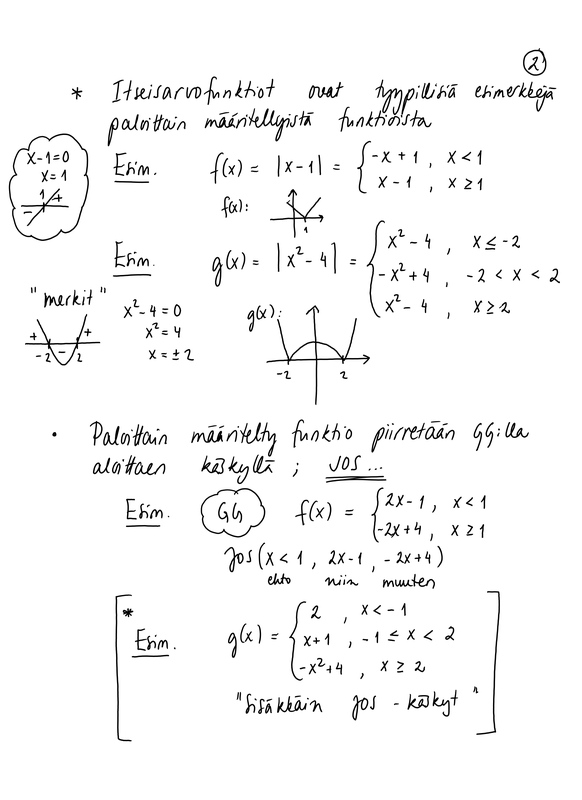 2
* Itseisarvofunktiot ovat tyypillisiä esimerkkejä
paloittain määritellyistä funktioista
x-1=0
x=1
1
- +
Esim. f(x) = |x-1| = { -x+1 , x<1
x-1 , x≥1
f(x):
1
Esim. g(x) = |x²-4| = { x²-4 , x≤-2
-x²+4 , -2<x<2
x²-4 , x≥2
"merkit"
+ - +
-2 2
x²-4=0
x²=4
x=±2
g(x):
-2 2
• Paloittain määritelty funktio piirretään GG:lla
aloittaen käskyllä ; JOS...
Esim. GG f(x) = { 2x-1 , x<1
-2x+4 , x≥1
Jos(x<1 , 2x-1 , -2x+4)
ehto niin muuten
*
Esim. g(x) = { 2 , x<-1
x+1 , -1≤x<2
-x²+4 , x≥2
"Sisäkkäin Jos - käskyt"